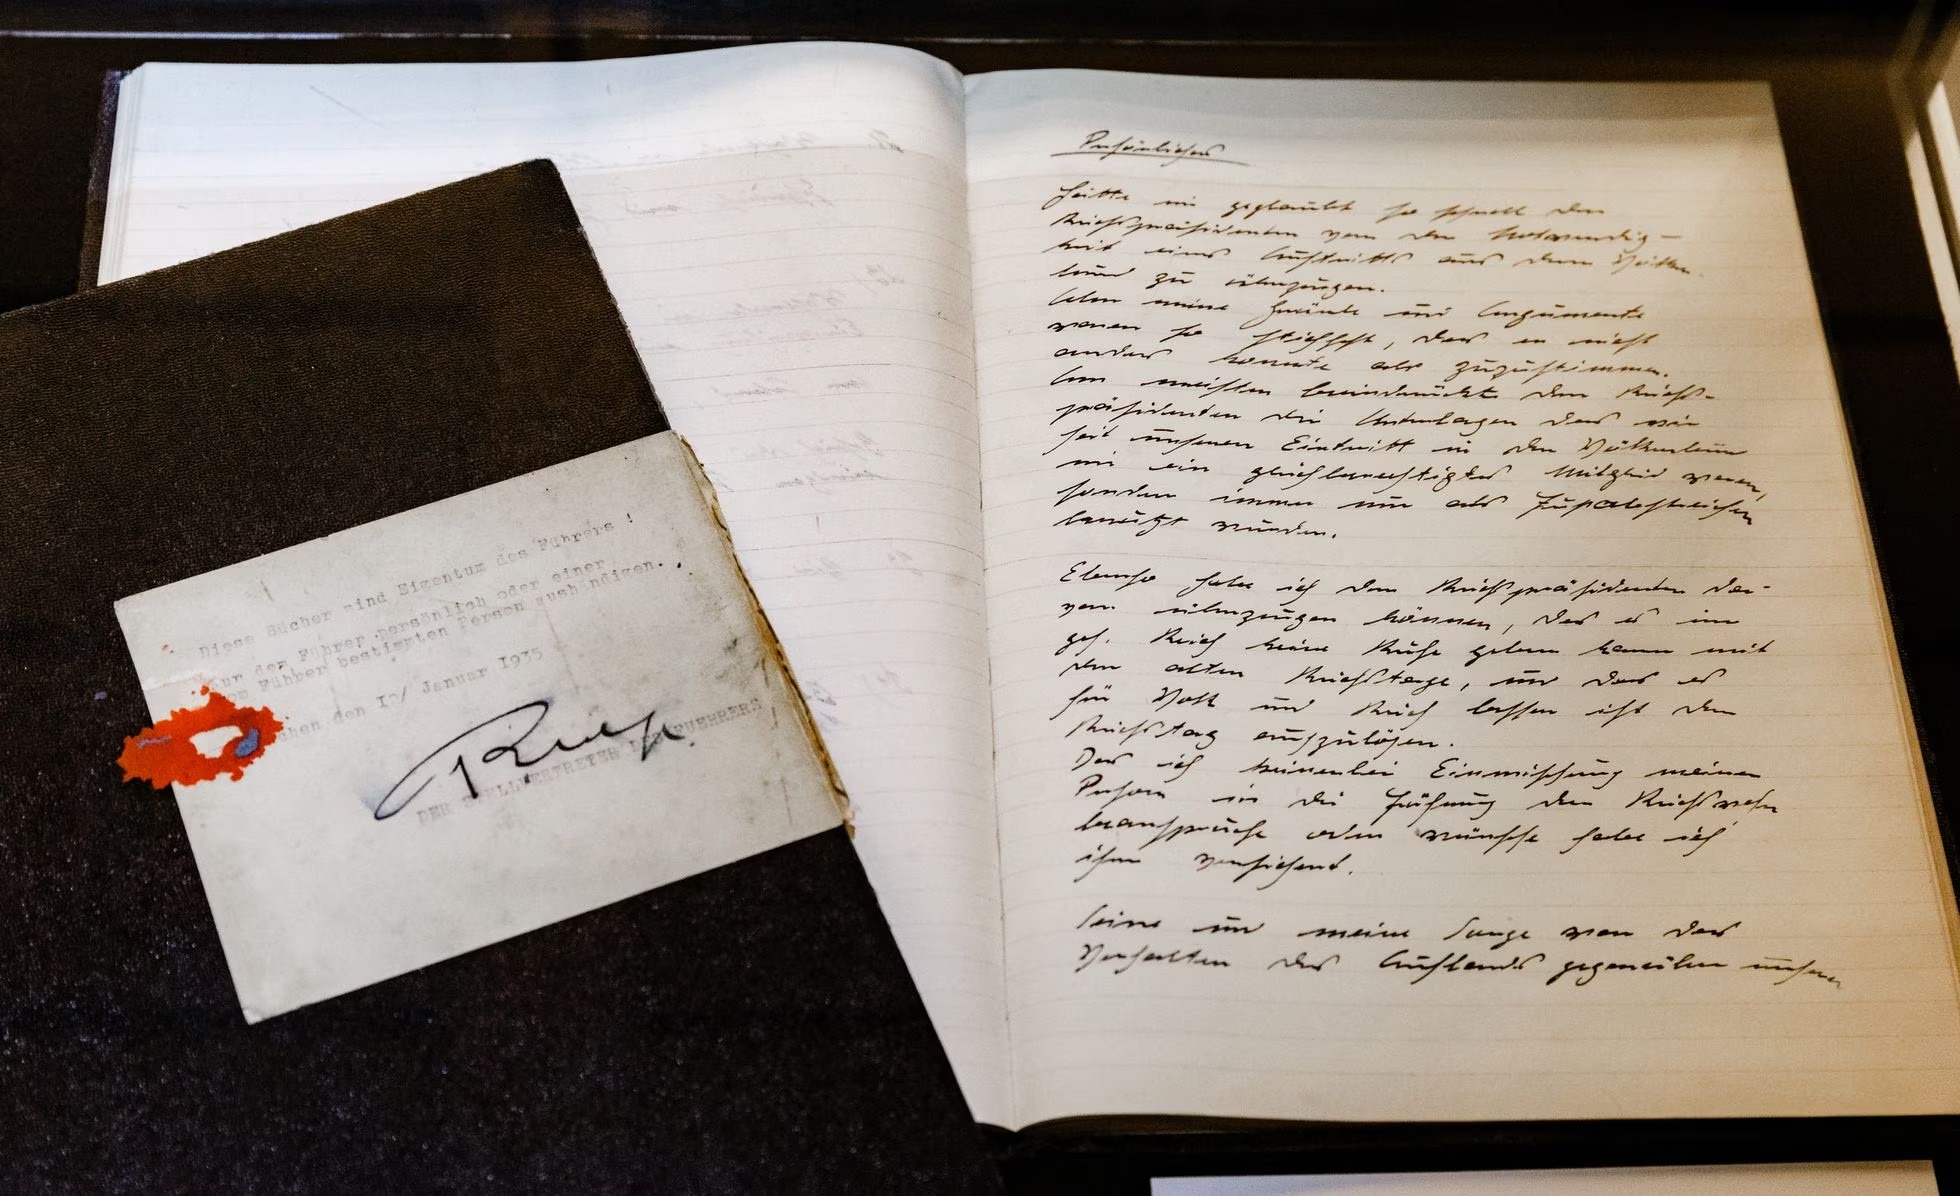 Diese Bücher sind Eigentum des Führers !
Nur dem Führer persönlich oder einer
vom Führer bestimpten Person aushändigen.
chen den Januar 1935
DER STELLVERTRETER DES FUEHRERS
Persönliches
Hätte nie geglaubt so schnell den
Reichspräsidenten von der Notwendig-
keit eines Austritts aus dem Völker-
bund zu überzeugen.
Aber meine Gründe und Argumente
waren so stichfest, das er nicht
anders konnte als zuzustimmen.
Am meisten beeindruckte den Reichs-
präsidenten die Unterlagen das wir
seit unseren Eintritt in den Völkerbund
nie ein gleichberechtigtes Mitglied waren,
sondern immer nur als Fußabstreicher
benützt wurden.
Ebenso habe ich den Reichspräsidenten da-
von überzeugen können, das es im
ges. Reich keine Ruhe geben kann mit
dem alten Reichstage, und das es
für Volk und Reich besser ist den
Reichstag aufzulösen.
Das ich keinerlei Einmischung meiner
Person in die Führung der Reichswehr
beanspruche oder wünsche habe ich
ihm versichert.
Seine und meine Sorge war das
Verhalten des Auslands gegenüber unserer